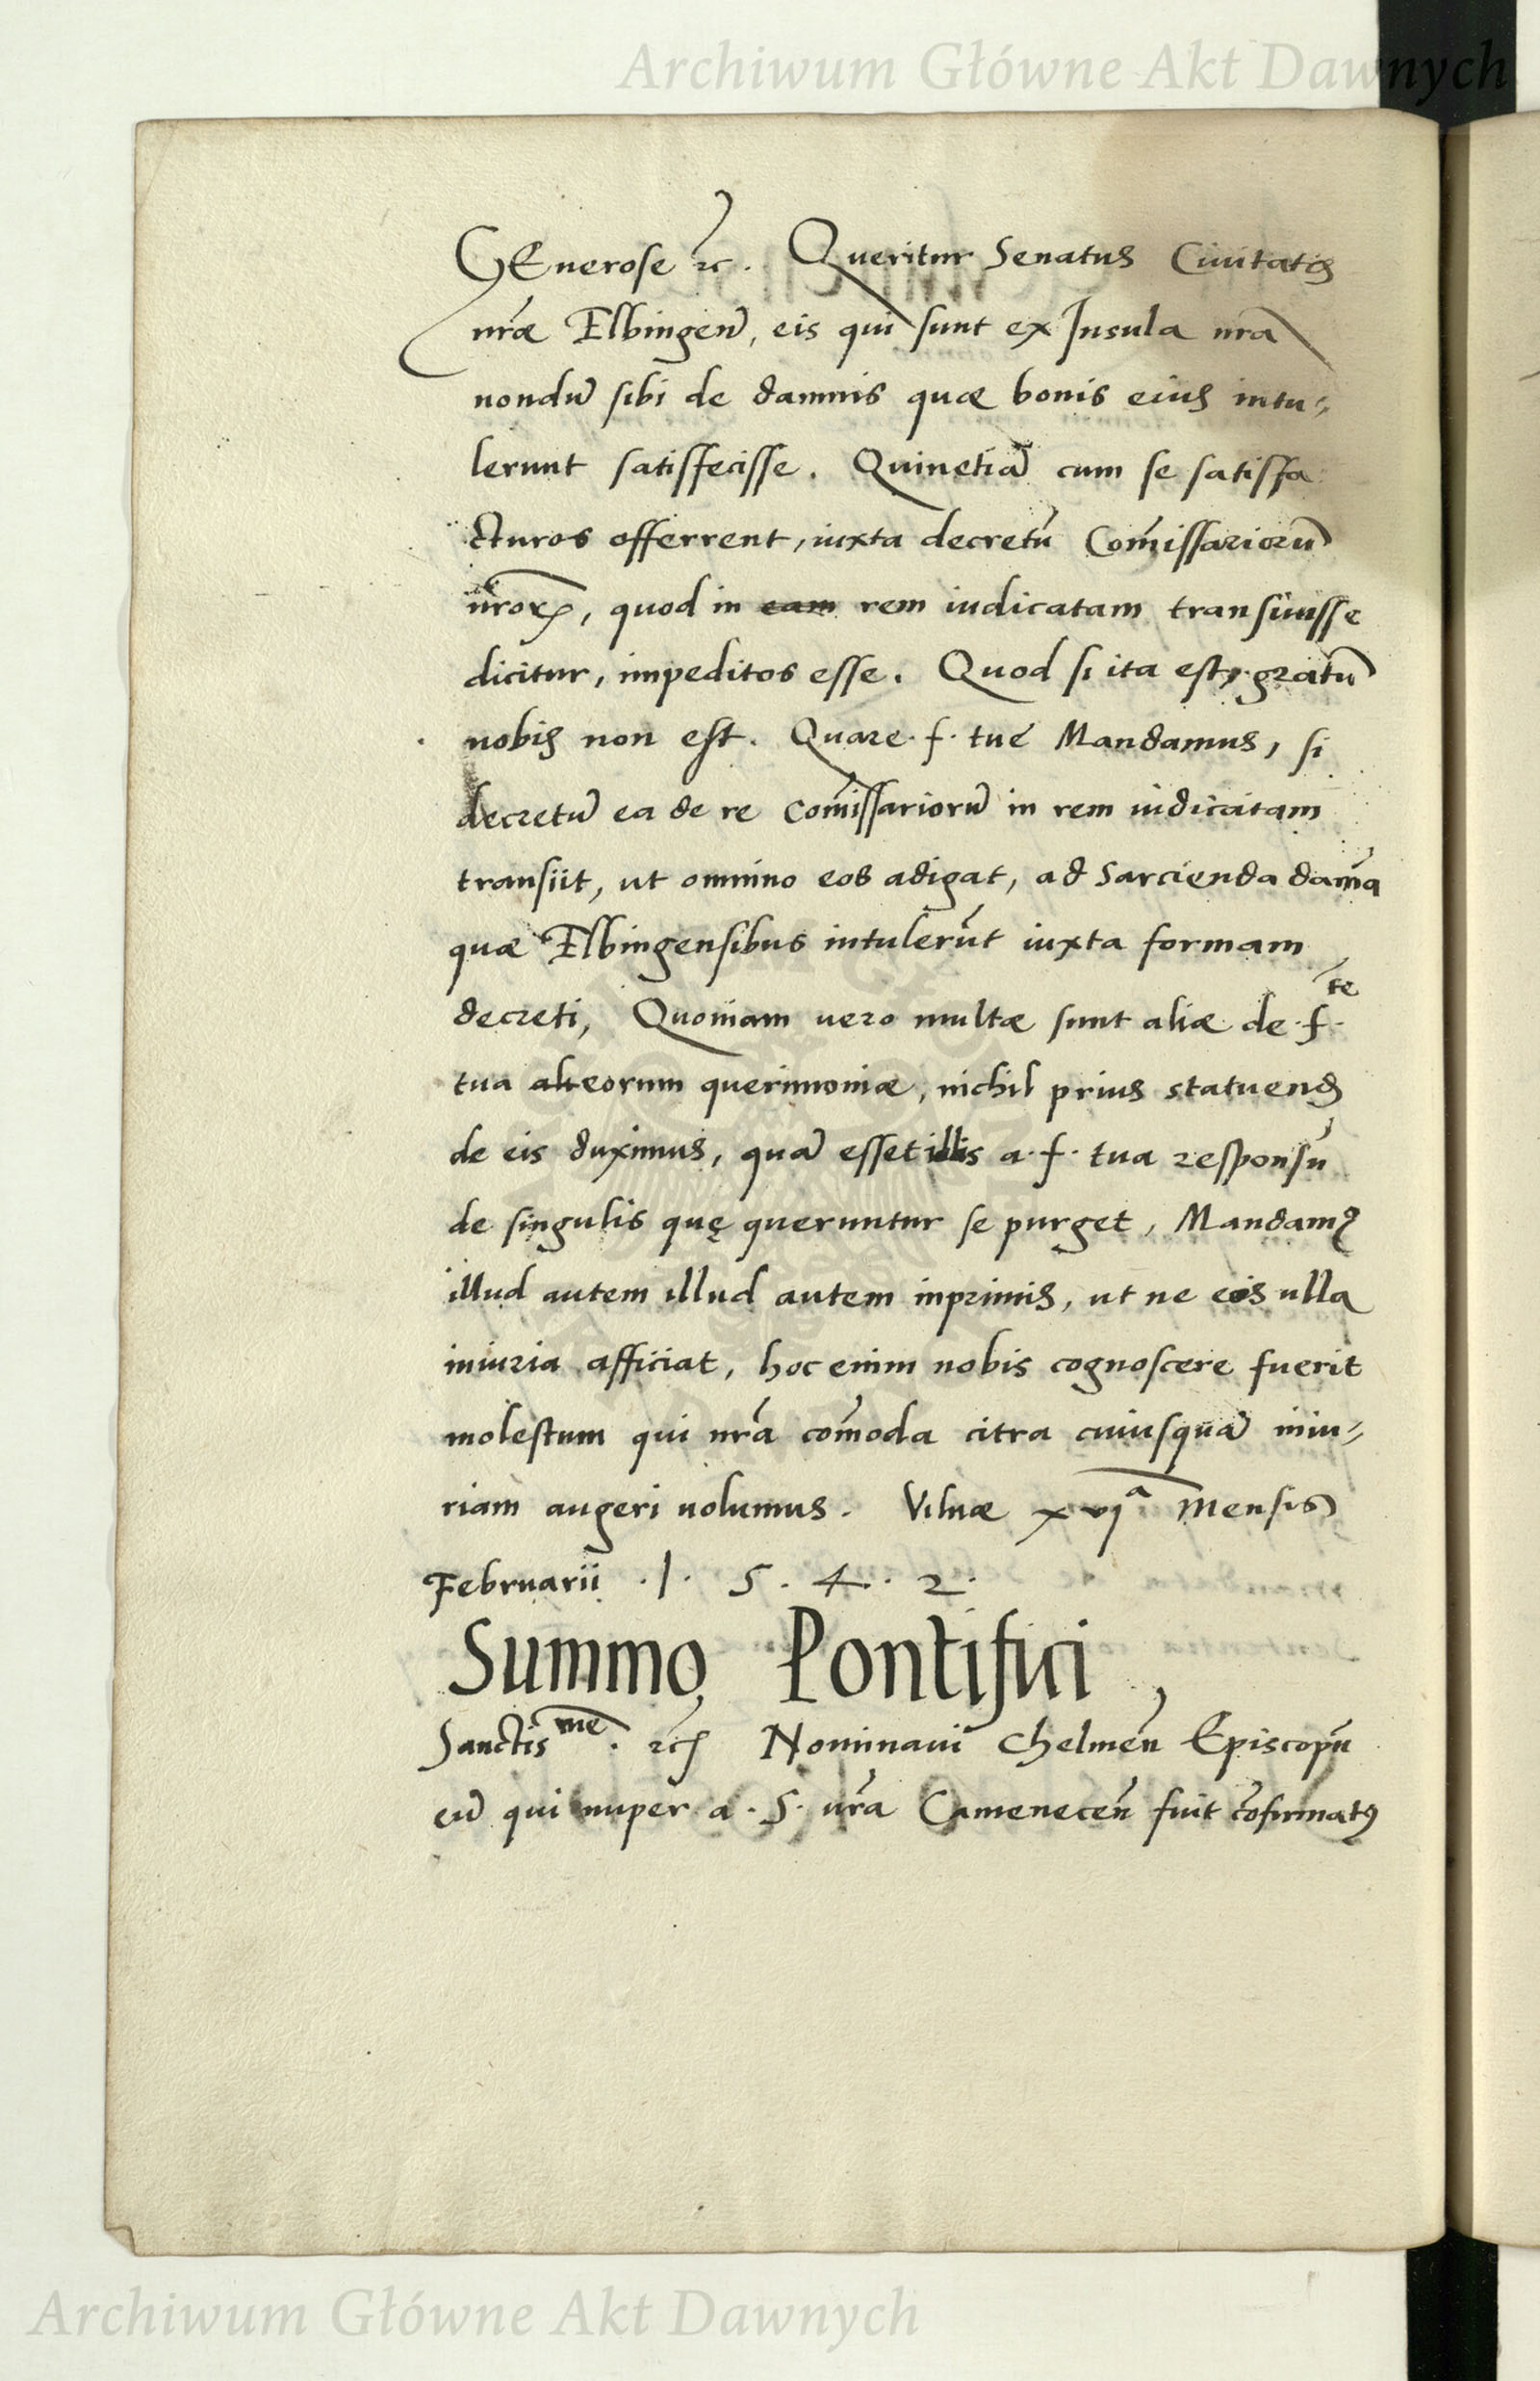 Archiwum Główne Akt Dawnych
GEnerose ꝛc. Queritur Senatus Ciuitatis
nr̃æ Elbingeñ, eis qui sunt ex Insula nr̃a
nondũ sibi de damnis quæ bonis eius intu-
lerunt satisfecisse. Quinetiã cum se satisfa
cturos offerrent, iuxta decretũ Com̃issariorũ
nr̃oꝝ, quod in eam rem iudicatam transiuisse
dicitur, impeditos esse. Quod si ita est, gratũ
nobis non est. Quare f. tuę Mandamus, si
decretũ ea de re Com̃issariorũ in rem iudicatam
transiit, ut omnino eos adigat, ad Sarcienda dam̃a
quæ Elbingensibus intulerũt iuxta formam
decreti, Quoniam uero multæ sunt aliæ de f.te
tua eorum querimoniæ, nichil prius statuend
de eis duximus, quã esset illis a f. tua responsũ
de singulis quę queruntur se purget, Mandamꝰ
illud autem illud autem inprimis, ut ne eos ulla
iniuria afficiat, hoc enim nobis cognoscere fuerit
molestum qui nr̃a com̃oda citra cuiusquã iniu-
riam augeri uolumus. Vilnæ xvjᵃ Mensis
Februarii .1. 5. 4. 2.
Summo Pontifici,
Sanctisme. ꝛc Nominaui Chelmeñ Episcopũ
eũ qui nuper a. S. ur̃a Cameneceñ fuit cõfirmatꝰ
Archiwum Główne Akt Dawnych